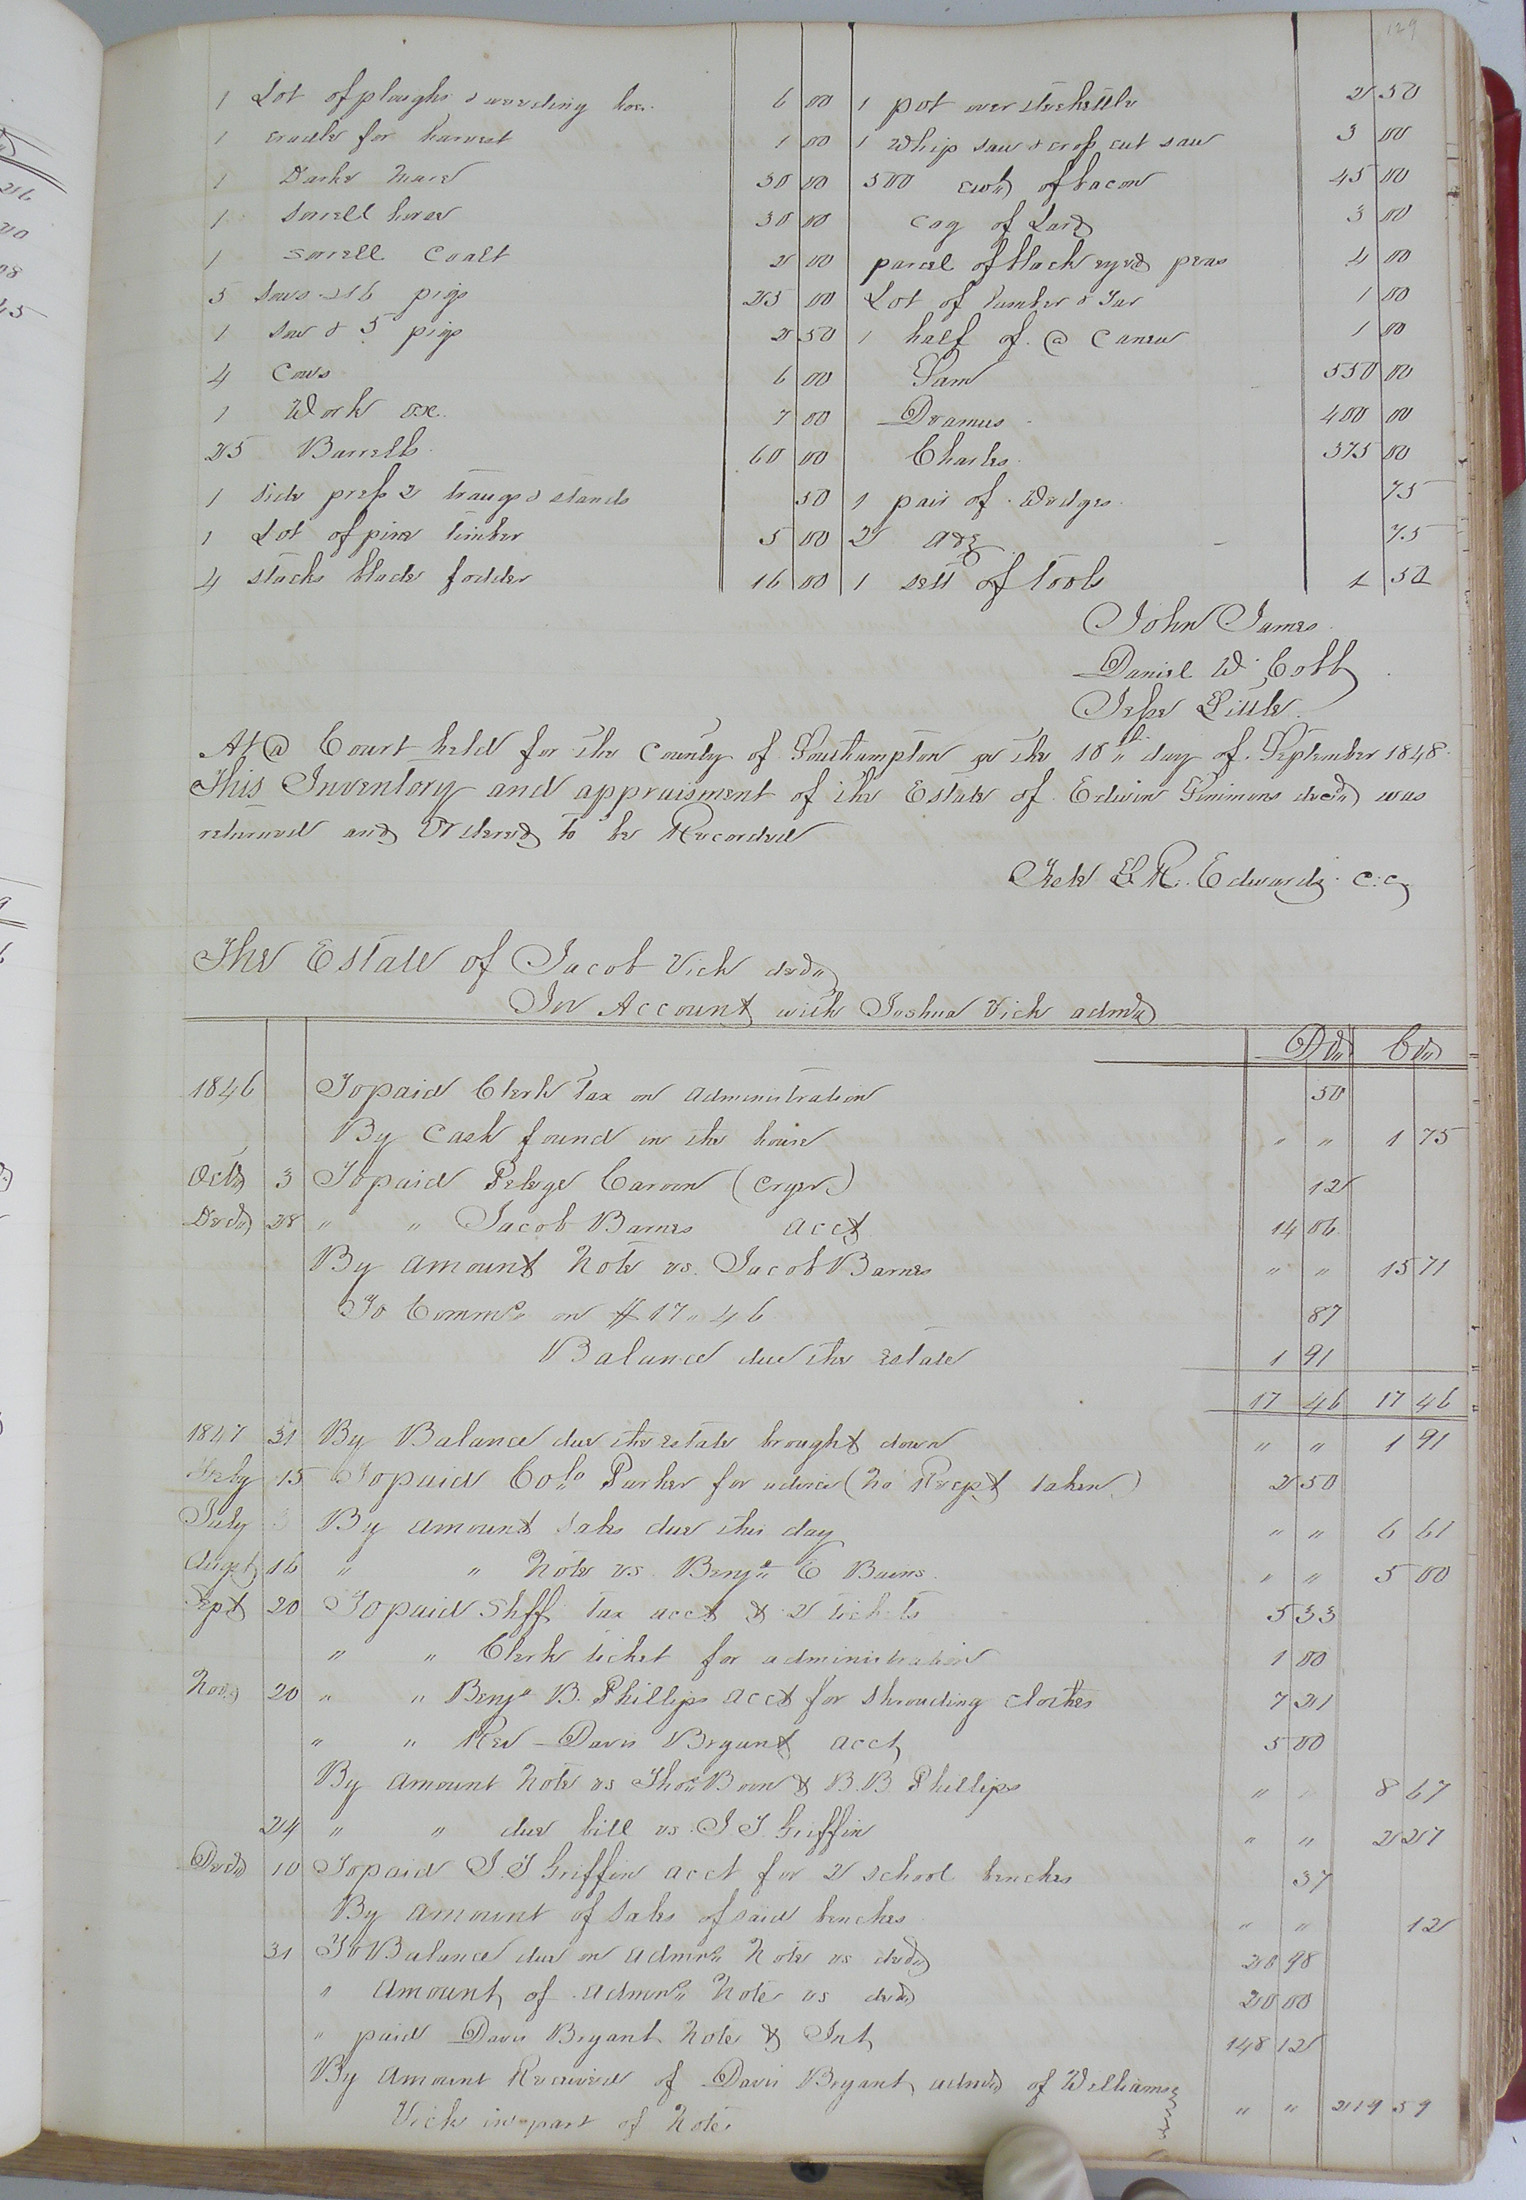 129
1 Lot of ploughs & weeding hoes 6 00
1 cradle for harvest 1 00
1 Darke Mare 30 00
1 Sorrell horse 30 00
1 Sorrell Coalt 2 00
5 Sows 26 pigs 25 00
1 Sow & 5 pigs 2 50
4 Cows 6 00
1 Work ox 7 00
25 Barrells 60 00
1 Side press 2 & stands 50
1 Lot of pine timber 5 00
4 stacks blade fodder 16 00
1 pot oven & teakettle 2 50
1 Whip saw & cross cut saw 3 00
500 cwt of bacon 45 00
cag of Lard 3 00
parcel of black eyed peas 4 00
Lot of lumber & Tar 1 00
1 half of a Canew 1 00
Sam 550 00
Dramus 400 00
Charles 375 00
1 pair of Wedges 75
2 adz 75
1 sett of Tools 1 50
John James
Daniel W. Cobb
Jesse Little
At a Court held for the County of Southampton on the 18th day of September 1848
This Inventory and appraisment of the Estate of Edwin Simmons decd was
returned and Ordered to be Recorded
Teste L. R. Edwards C.C
The Estate of Jacob Vick decd
In Account with Joshua Vick admr
Dr Cr
1846 To paid Clerk Tax on administration 50
By Cash found in the house " " 1 75
Octr 3 To paid Pelege Carven (cryer) 12
Decr 28 " " Jacob Barnes acct 14 06
By amount Note vs. Jacob Barnes " " 15 71
To Comms on $17.46 87
Balance due the estate 1 91
17 46 17 46
1847 31 By Balance due the estate brought down " " 1 91
Feby 15 To paid Colo Parker for advice (No Recpt taken) 2 50
July 3 By amount Sales due this day " " 6 61
Augst 16 " " Note vs. Benja C Barns " " 5 00
Sept 20 To paid Shff tax acct & 2 tickets 5 33
" " Clerk ticket for administration 1 00
Novr 20 " " Benja B. Phillips acct for shrouding clothes 7 21
" " Rev Davis Bryant acct 5 00
By amount Note vs Thos Boon & B. B Phillips " " 8 67
24 " " due bill vs. J J. Griffin " " 2 27
Decr 10 To paid J. J Griffin acct for 2 school benches 37
By amount of Sales of said benches " " 12
31 To Balance due on admrs Note vs decd 20 98
" Amount of admrs Note vs decd 20 00
" paid Davis Bryant Note & Int 148 12
By amount Received of Davis Bryant admr of Williams
Vick in part of Note " " 219 59